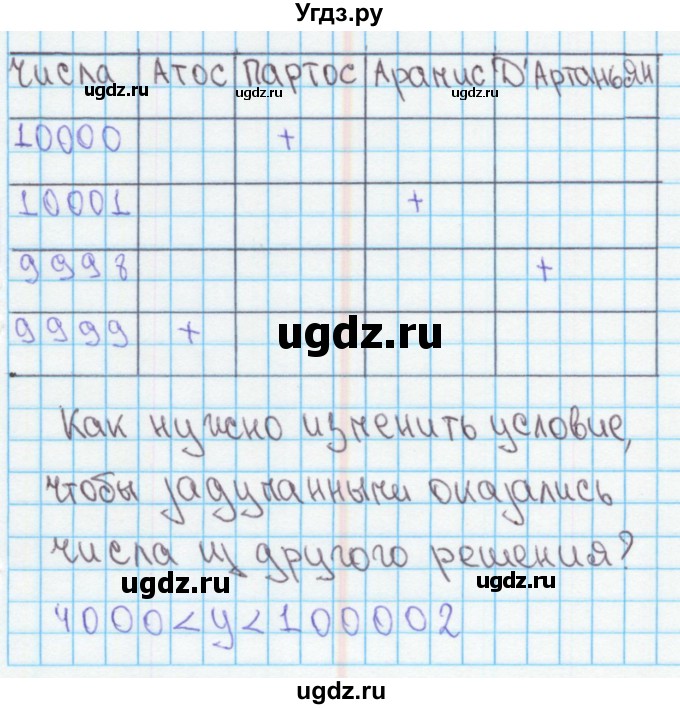 Угдз.ру
Числа Атос Партос Арамис Д'Артаньян
ugdz.ru ugdz.ru ugdz.ru
10000 +
10001 +
9998 +
9999 +
ugdz.ru
Как нужно изменить условие,
чтобы задуманными оказались
числа из другого решения?
ugdz.ru ugdz.ru
4000 < y < 100002
ugdz.ru